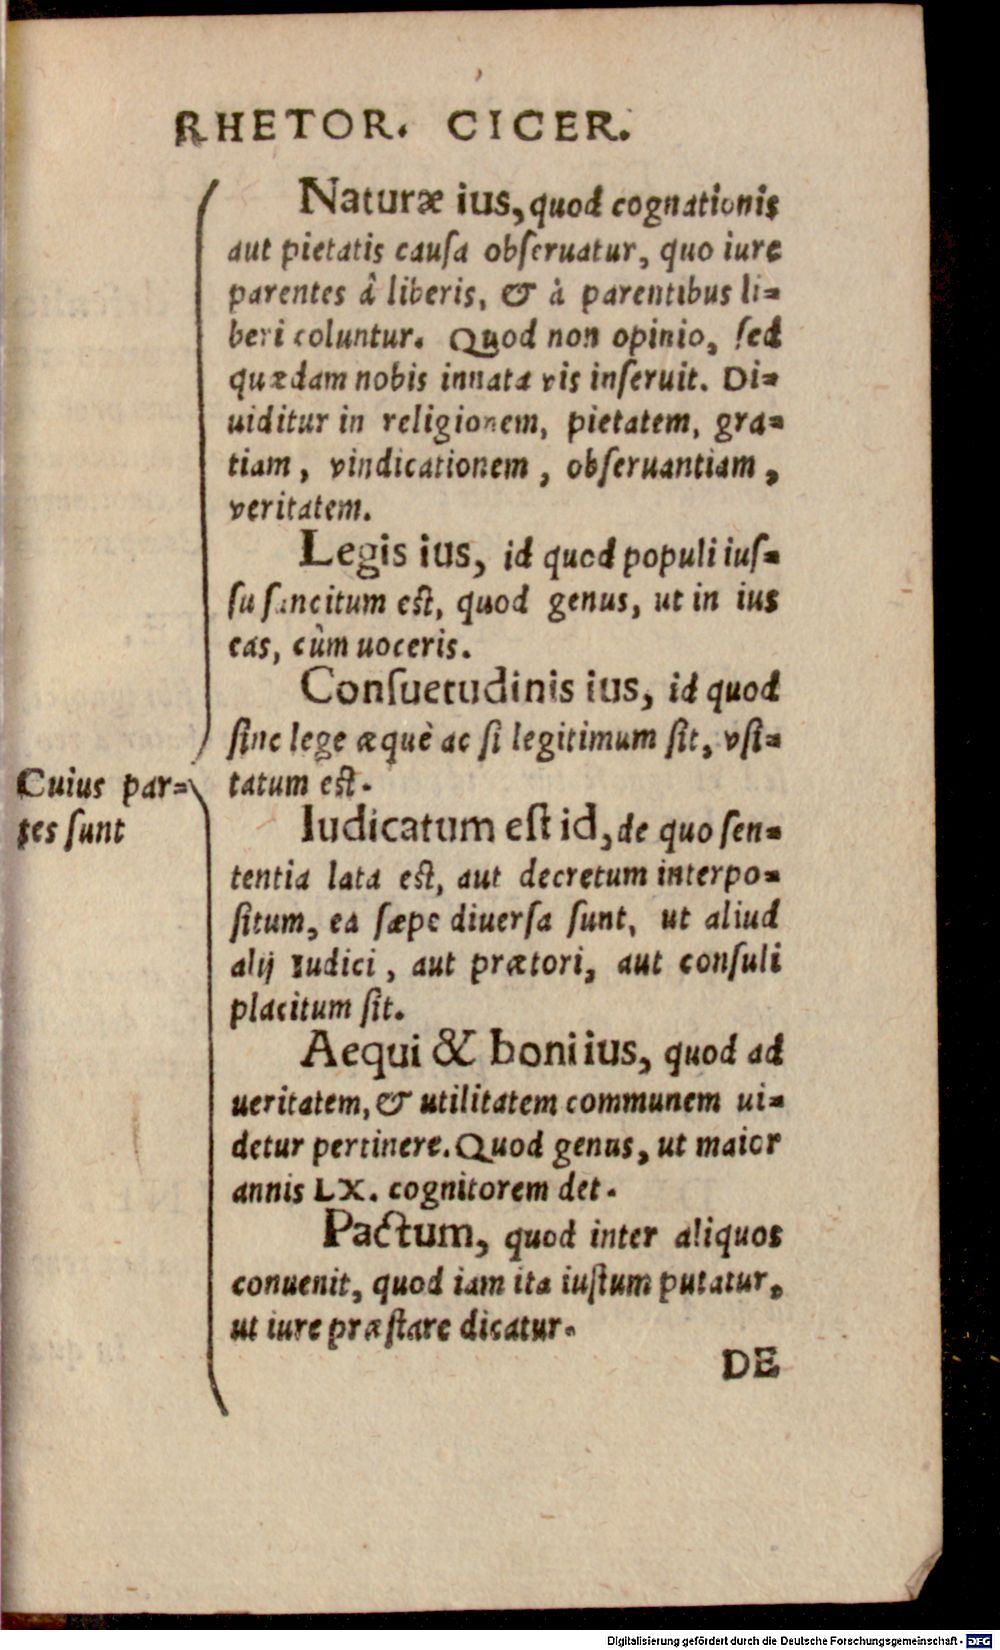 RHETOR. CICER.
Naturæ ius, quod cognationis
aut pietatis cauſa obſeruatur, quo iure
parentes â liberis, & à parentibus li=
beri coluntur. Quod non opinio, ſed
quædam nobis innata vis inſeruit. Di=
uiditur in religionem, pietatem, gra=
tiam, vindicationem, obſeruantiam,
veritatem.
Legis ius, id quod populi iuſ=
ſu ſancitum eſt, quod genus, ut in ius
eas, cùm uoceris.
Conſuetudinis ius, id quod
ſine lege æquè ac ſi legitimum ſit, vſi=
tatum eſt.
Cuius par=
tes ſunt
Iudicatum eſt id, de quo ſen=
tentia lata eſt, aut decretum interpo=
ſitum, ea ſæpe diuerſa ſunt, ut aliud
alij Iudici, aut prætori, aut conſuli
placitum ſit.
Aequi & boni ius, quod ad
ueritatem, & utilitatem communem ui=
detur pertinere. Quod genus, ut maior
annis LX. cognitorem det.
Pactum, quod inter aliquos
conuenit, quod iam ita iuſtum putatur,
ut iure præſtare dicatur.
DE
Digitalisierung gefördert durch die Deutsche Forschungsgemeinschaft - DFG